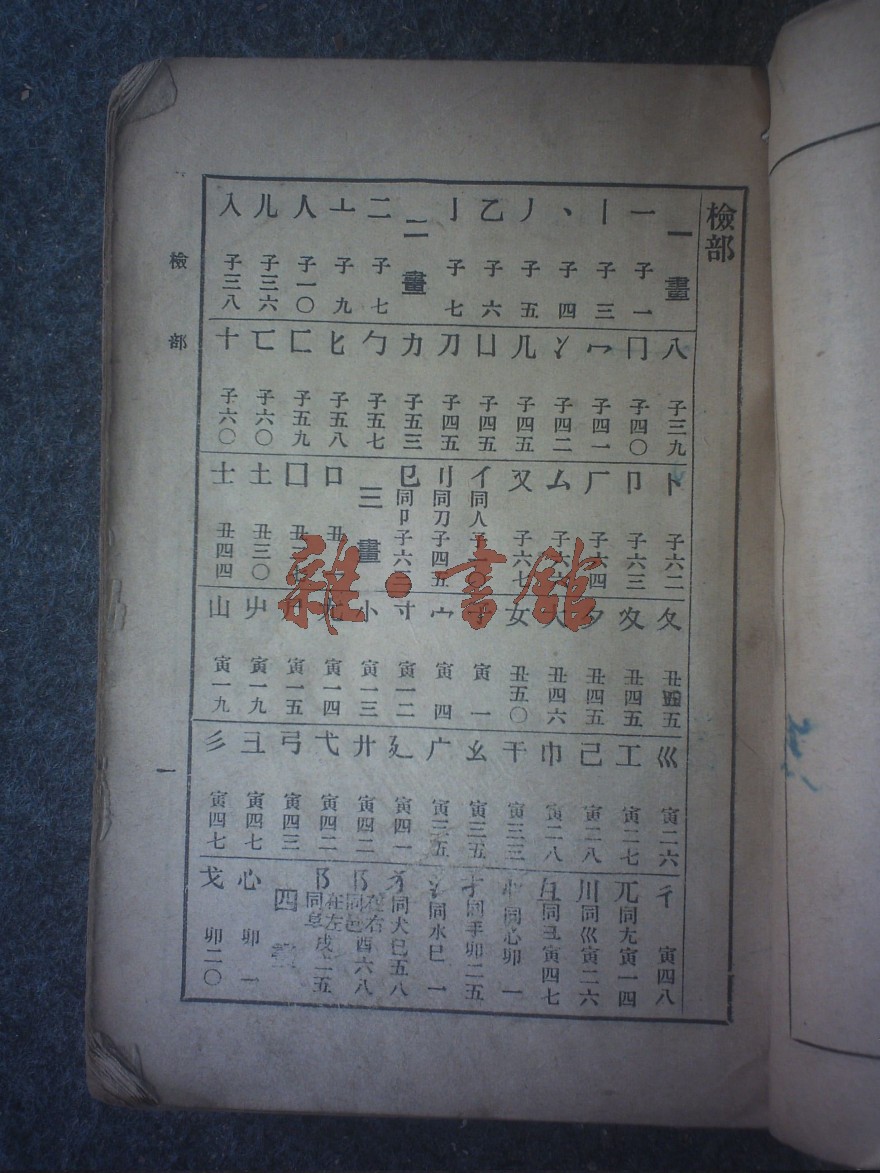 檢部
一畫
一 子一
丨 子三
丶 子四
丿 子五
乙 子六
亅 子七
二畫
二 子七
亠 子九
人 子一〇
儿 子三六
入 子三八
八 子三九
冂 子四〇
冖 子四一
冫 子四二
几 子四五
凵 子四五
刀 子四五
力 子五三
勹 子五七
匕 子五八
匚 子五九
匸 子六〇
十 子六〇
卜 子六二
卩 子六三
厂 子六四
厶 子六
又 子六七
亻同人 子 〇
刂同刀 子四五
㔾同卩 子六
三畫
口 丑
囗 丑二
土 丑三〇
士 丑四四
夂 丑四五
夊 丑四五
夕 丑四五
大 丑四六
女 丑五〇
子 寅一
宀 寅四
寸 寅一二
小 寅一三
尢 寅一四
尸 寅一五
屮 寅一九
山 寅一九
巛 寅二六
工 寅二七
己 寅二八
巾 寅二八
干 寅三三
幺 寅三五
广 寅三五
廴 寅四一
廾 寅四二
弋 寅四二
弓 寅四三
彐 寅四七
彡 寅四七
彳 寅四八
兀同尢 寅一四
川同巛 寅二六
彑同彐 寅四七
忄同心 卯一
扌同手 卯二五
氵同水 巳一
犭同犬 巳五八
阝在右同邑 酉六八
阝在左同阜 戌二五
四畫
心 卯一
戈 卯二〇
檢部
一
雜·書館